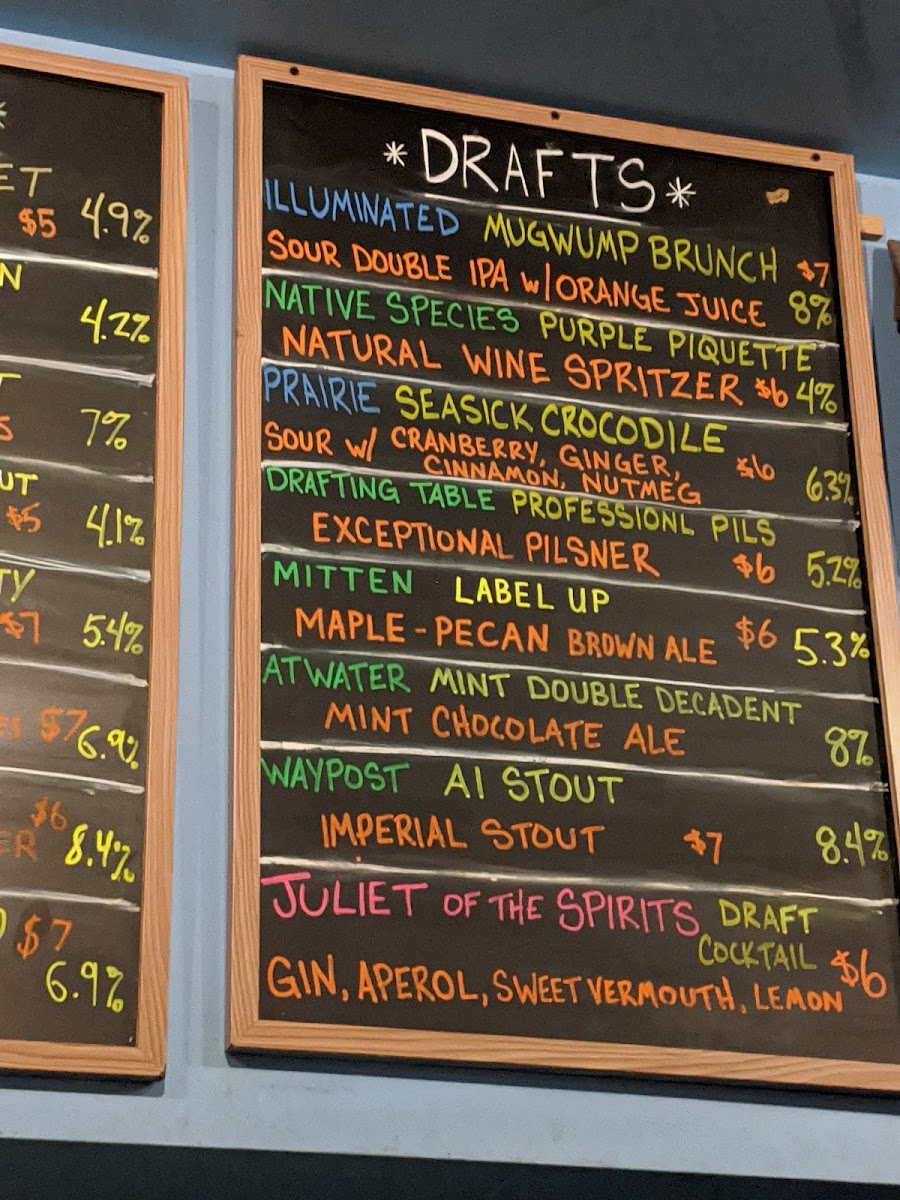 ET
$5 4.9%
N
4.2%
T
S 7%
UT
$5 4.1%
TY
$7 5.4%
ES $7 6.9%
$6
ER 8.4%
$7
6.9%
*DRAFTS*
ILLUMINATED MUGWUMP BRUNCH $7
SOUR DOUBLE IPA w/ORANGE JUICE 8%
NATIVE SPECIES PURPLE PIQUETTE
NATURAL WINE SPRITZER $6 4%
PRAIRIE SEASICK CROCODILE
SOUR w/ CRANBERRY, GINGER, $6 6.3%
CINNAMON, NUTMEG
DRAFTING TABLE PROFESSIONL PILS
EXCEPTIONAL PILSNER $6 5.2%
MITTEN LABEL UP
MAPLE-PECAN BROWN ALE $6 5.3%
ATWATER MINT DOUBLE DECADENT
MINT CHOCOLATE ALE 8%
WAYPOST A1 STOUT
IMPERIAL STOUT $7 8.4%
JULIET OF THE SPIRITS DRAFT
COCKTAIL $6
GIN, APEROL, SWEET VERMOUTH, LEMON